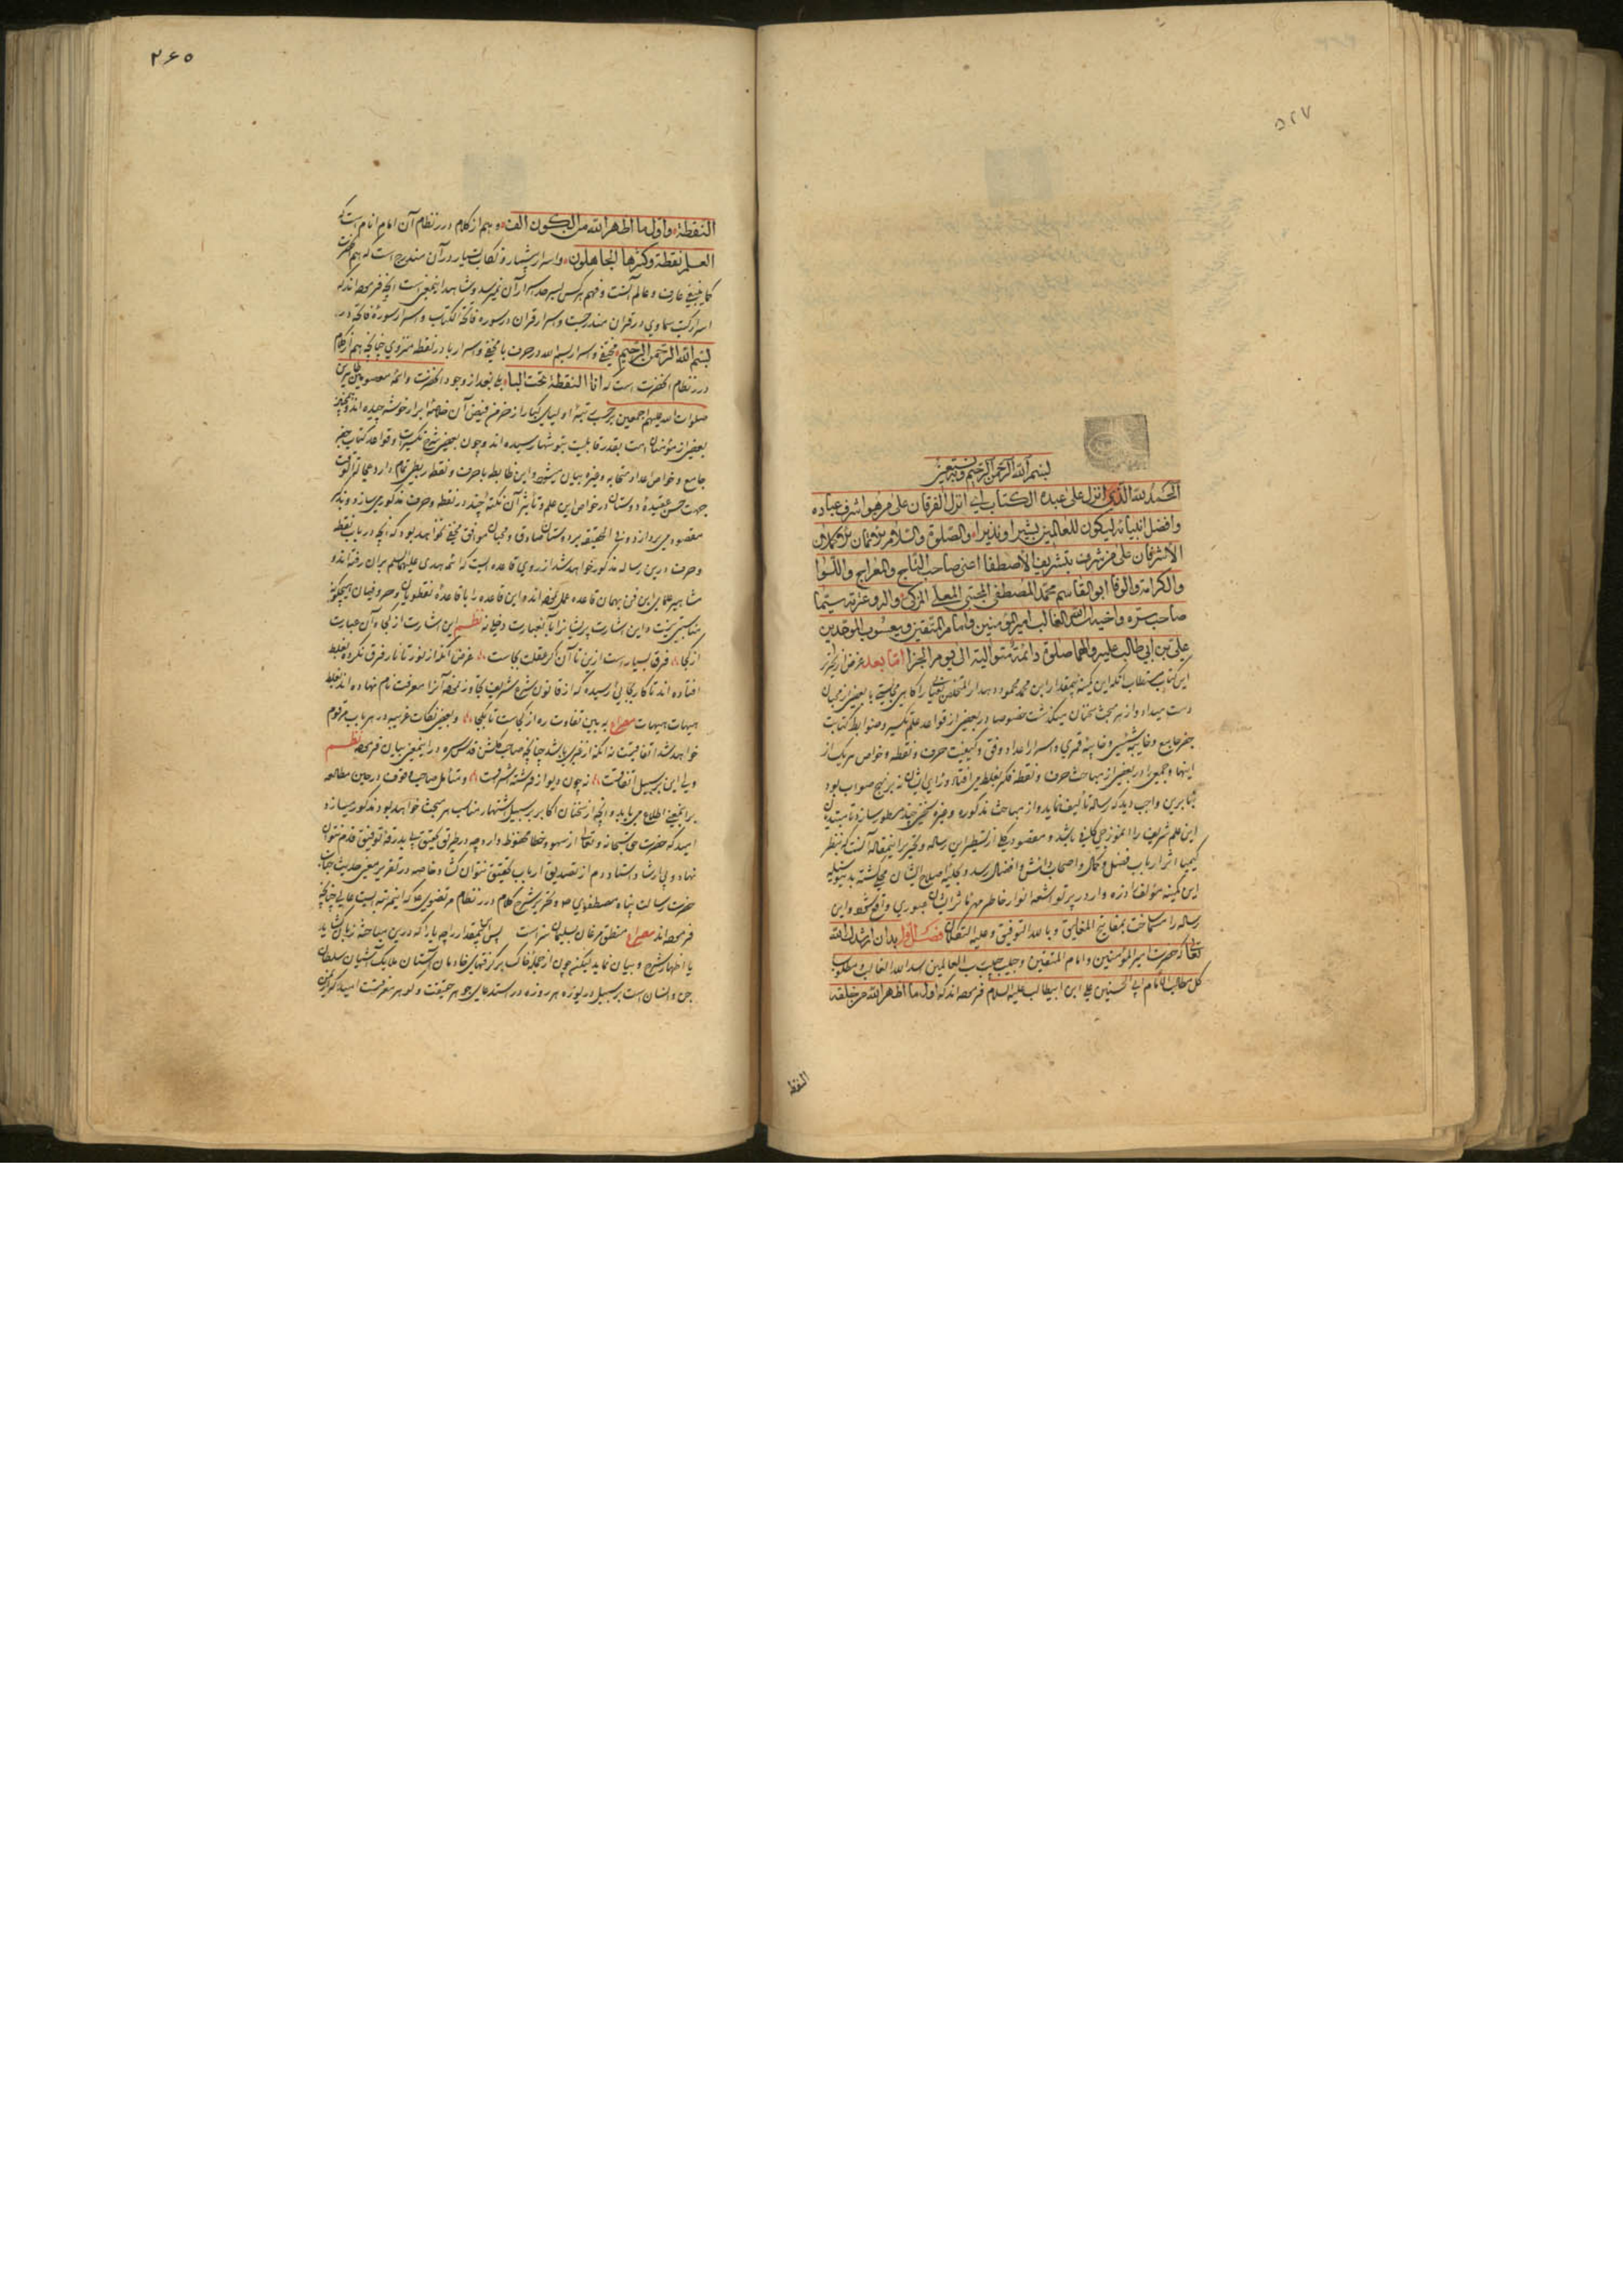 ۵۲۷
بسم الله الرحمن الرحیم وبه نستعین
الحمد لله الذی انزل علی عبده الکتاب ای انزل الفرقان علی من هو اشرف عباده
وافضل انبیائه لیکون للعالمین بشیرا ونذیرا والصلوة والسلام
الاشرفان علی من شرف بتشریف الاصطفا اعنی صاحب التاج والمعراج واللوا
والکرامة والوفا ابو القاسم محمد المصطفی المجتبی المعلی المزکی واله وعترته سیما
صاحب سره واخیه اسد الله الغالب امیر المؤمنین وامام المتقین ویعسوب الموحدین
علی بن ابی طالب علیه والهما صلوة دائمة متوالیة الی یوم الجزا اما بعد غرض از تحریر
این کتاب مستطاب آنکه این کمینه بیمقدار ابن محمد محمود دهدار المتخلص بعیانی را گاهی مجالستی با بعضی از محبان
دست میداد واز هر مبحث سخنان میگذشت خصوصا در بعضی از قواعد علم تکسیر وضوابط کتابت
جفر جامع وخافیه شمسی وخافیه قمری واسرار اعداد وفق وکیفیت حرف ونقطه وخواص هر یک از
اینها وجمعی را در بعضی از مباحث حرف ونقطه فکر بغلط می افتاد ورای ایشان نه بر نهج صواب بود
بنابرین واجب دید که رساله تألیف نماید واز مباحث مذکوره وغیره سخنی چند مسطور سازد تا مبتدیان
این علم شریف را انموذجی کلیه باشد ومقصود کلی از تسطیر این رساله وتحریر این مقاله آنست که بنظر
کیمیا اثر ارباب فضل وکمال واصحاب دانش وافضال رسد وبکلیه اصلاح ایشان محلی گشته بدینوسیله
این کمینه مؤلف ذره وار در پرتو اشعه انوار خاطر مهر تاثر ایشان عبوری واقع شود واین
رساله را مسما ساخت بمفاتیح المغالیق وبالله التوفیق وعلیه التکلان فصل اول بدان ارشدک الله
تعالی که حضرت امیر المؤمنین وامام المتقین وحبیب حبیب رب العالمین اسد الله الغالب مطلوب
کل طالب امام ابی الحسنین علی ابن ابیطالب علیه السلام فرموده اند که اول ما اظهر الله من خلقه
النقط
۲۶۵
النقطة واول ما اظهر الله من الکون الف وهم از کلام درر نظام آن امام انام است که
العلم نقطة وکثرها الجاهلون واسرار بیشمار ونکات بسیار در آن مندرج است که هم حضرت
کما ینبغی عارف وعالم آنست وفهم هر کس بسرحد اسرار آن نمیرسد وشاهد اینمعنی است آنچه فرموده اند که
اسرار کتب سماوی در قران مندرجست واسرار قران در سوره فاتحة الکتاب واسرار سورۀ فاتحه در
بسم الله الرحمن الرحیم مخفی واسرار بسم الله در حرف با مخفی واسرار با در نقطه منزوی چنانچه هم از کلام
درر نظام آنحضرت است که انا النقطة تحت الباء بلی بعد از وجود آنحضرت وائمۀ معصومین
صلوات الله علیهم اجمعین بر حسب تبعه اولیای کبار از خرمن فیض آن خلاصۀ ابرار خوشه چیده اند وهمچنین
بعضی از مؤمنان امت بقدر قابلیت بتوشهار سیده اند وچون بعضی شرح تکسیرات وقواعد کتاب جفر
جامع وخواص اعداد متحابه وغیره بیان میشود واین ضابطه با حرف ونقطه ربطی تمام دارد
جهت حسن عقیدۀ دوستان در خواص این علم وتأثیر آن نکتۀ چند در نقطه وحرف مذکور میسازد
مقصود می پردازد وفی الحقیقه بر دوستان صادق ومحبان موافق مخفی نخواهد بود که آنچه در باب نقطه
وحرف درین رساله مذکور خواهد شد از روی قاعده ایست که ائمه هدی علیهم السلم بر آن رفته اند و
مشاهیر علمای این فن بهمان قاعده عمل نموده اند واین قاعده را با قاعدۀ نقطویان وحروفیان هیچگونه
مناسبتی نیست واین اشارت پریشانرا با آنعبارت دخلی نه نظم این اشارت از کجا وآن عبارت
از کجا فرق بسیار است ازین تا آن گر عقلت بجاست غرض آنکه از نور تا نار فرق نکرده بغلط
افتاده اند تا کار بجائی رسیده که از قانون شرع شریف تجاوز نموده آنرا معرفت نام نهاده اند بغلط
هیهات هیهات مصراع به بین تفاوت ره از کجاست تا بکجا وبعضی نکات غریبه در هر باب مرقوم
خواهد شد اتفاقیست نه آنکه از غیری باشد چنانچه صاحب گلشن قدس سره در اینمعنی بیان فرموده نظم
ولی این بر سبیل اتفاقست نه چون دیو از فرشته استراقست ومتأمل صاحب وقوف در حین مطالعه
بر اینمعنی اطلاع می یابد وآنچه از سخنان اکابر بر سبیل استشهاد مناسب هر مبحث خواهد بود مذکور میسازد
امید که حضرت حق سبحانه وتعالی از سهو وخطا محفوظ دارد چه در طریق تحقیق بی بدرقۀ توفیق قدم نتوان
نهاد وبی ارشاد استاد دم از تصدیق ارباب تحقیق نتوان گشاد خاصه در تقریر معنی حدیث جناب
حضرت رسالت پناه مصطفوی ص وتحریر شرح کلام درر نظام مرتضوی ع که اینمرتبه ایست عالی چنانچه
فرموده اند مصراع منطق مرغان سلیمان سزاست پس این بیمقدار را چه یارا که درین مباحثه زبان گشاید
یا اظهار شرح وبیان نماید لیکن چون از جملۀ خاک برگرفتهای خادمان آستان ملایک آشیان سلطان
جن وانسان است بر سبیل دریوزه هر روزه در استدعای جوهر حقیقت وگوهر معرفت امیدوار